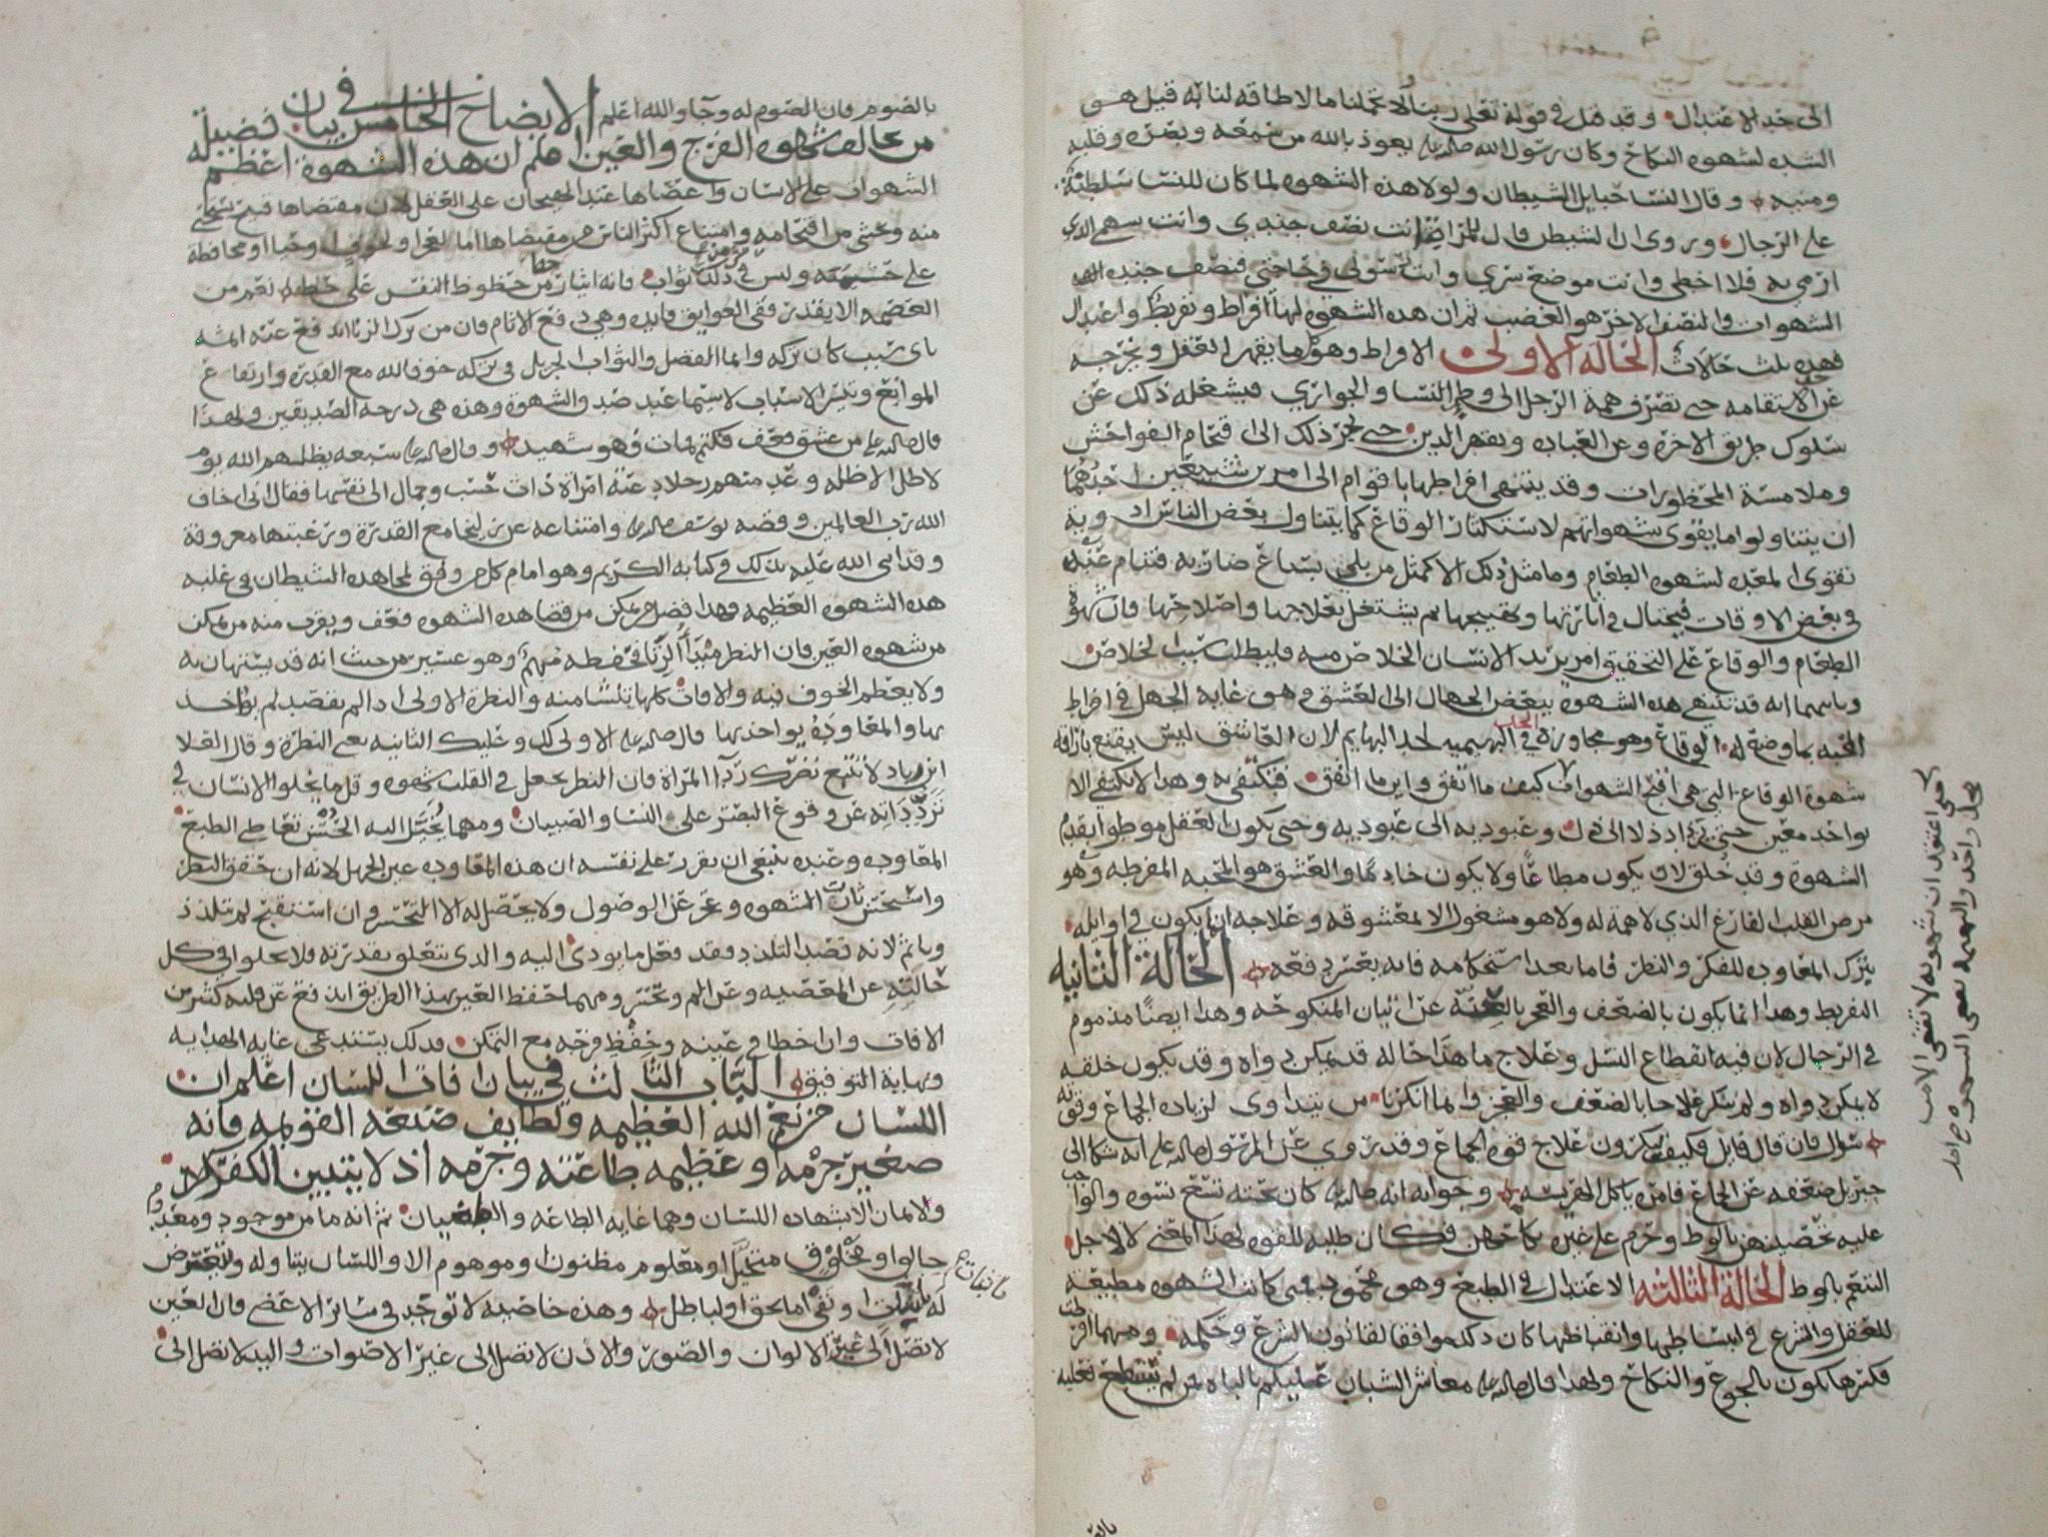 الى حد الاعتدال وقد قيل في قوله تعلى ربنا لا تحملنا ما لا طاقه لنا به قيل هو
الشده لشهوه النكاح وكان رسول الله صلى الله عليه يعوذ بالله من سمعه وبصره وقلبه
ومنيه وقال النسا حبايل الشيطان ولولا هذه الشهوه لما كان للنسا سلطنة
على الرجال وروي ان الشيطن قال للمراة انت نصف جندي وانت سهمي الذي
ارمي به فلا اخطي وانت موضع سري وانت رسولي في حاجتي فنصف جنده
الشهوات والنصف الاخر هو الغضب ثم ان هذه الشهوه لها افراط وتفريط واعتدال
فهذه ثلث حالات الحالة الاولى الافراط وهو ما يقهر العقل ويخرجه
عن انتقامه حتى تصرف همة الرجل الى وطي النسا والجواري فيشغله ذلك عن
سلوك طريق الاخره وعن العباده ويقهر الدين حتى يجر ذلك الى اقتحام الفواحش
وملامسة المحظورات وقد ينتهي افراطها باقوام الى امرين شنيعين احدهما
ان يتناولوا ما يقوي شهواتهم لاستكثار الوقاع كما يتناول بعض الناس ادوية
تقوي المعده لشهوه الطعام وما مثل ذلك الا كمثل من بلي بسباع ضاريه فتنام عنه
في بعض الاوقات فيحتال في اثارتها وتهييجها ثم يشتغل بعلاجها واصلاحها فان شهوة
الطعام والوقاع على التحقيق امر يريد الانسان الخلاص منه فيطلب سبب الخلاص
وثانيهما انه قد تنتهي هذه الشهوه ببعض الجهال الى العشق وهو غاية الجهل في افراط
المحبه بما وضع له الوقاع وهو مجاوره في البهيميه لحد البهايم لان العاشق ليس يقنع باراقة
شهوة الوقاع التي هي اقبح الشهوات كيف ما اتفق واين ما اتفق فتكتفي به وهذا لا يكتفي الا
بواحد معين حتى يزداد ذلا الى ذل وعبوديه الى عبوديه وحتى يكون العقل موطوا بقدم
الشهوة وقد خلق لان يكون مطاعا ولا يكون خادما والعشق هو المحبه المفرطه وهو
مرض القلب الفارغ الذي لا همة له ولا هو مشغول الا بمعشوقه وعلاجه انما يكون في اوايله
بترك المعاوده للفكر والنظر فاما بعد استحكامه فانه يعسر دفعه الحالة الثانيه
التفريط وهذا انما يكون بالضعف والعجز بالعنة عن اتيان المنكوحه وهذا ايضا مذموم
في الرجال لان فيه انقطاع النسل وعلاج ما هذا حاله قد يمكن دواه وقد يكون خلقه
لا يمكن دواه ولم ننكر علاجا بالضعف والعجز وانما انكرنا من يتداوى لزياده الجماع وقوته
سؤال فان قال قايل فكيف تنكرون علاج قوه الجماع وقد روي عن الرسول صلى الله عليه انه شكا الى
جبريل ضعفه عن الجماع فامره باكل الهريسه وجوابه انه صلى الله عليه كان تحته تسع نسوه والواجب
عليه تحصينهن بالوط وحرم على غيره نكاحهن فكان طلبه للقوه لهذا المعنى لا لاجل
التنعم بالوط الحالة الثالثه الاعتدال في الطبع وهو محمود فمتى كانت الشهوه مطيعة
للعقل والشرع في انبساطها وانقباضها كان ذلك موافقا لقانون الشرع وحكمه ومهما افرطت
فكسرها يكون بالجوع والنكاح ولهذا قال صلى الله عليه معاشر الشباب عليكم بالباه فمن لم يستطع فعليه
حتى اعتقد ان شهوته لا تنقضي الا من
محل واحد والبهيمه تقضي الشهوه
بالصوم فان الصوم له وجا والله اعلم الايضاح الخامس في بيان فضيلة
من يخالف شهوه الفرج والعين اعلم ان هذه الشهوة اعظم
الشهوات على الانسان واعصاها عند الهيجان على العقل لان مقتضاها قبيح يستحيى
منه ويخشى من اقتحامه وامتناع اكثر الناس عن مقتضاها اما لعجز او لخوف او حيا او محافظة
على حشمته وليس في ذلك ثواب فانه ايثار من حظوظ النفس على حظ نعم من
العصمه الا يقدر ففي العوايق فايده وهي دفع الاثام فان من ترك الزنا اندفع عنه اثمه
باي سبب كان تركه وانما الفضل والثواب الجزيل في تركه خوف الله مع القدره وارتفاع
الموانع وتيسر الاسباب لاسيما عند صدق الشهوة وهذه هي درجه الصديقين ولهذا
قال صلى الله عليه من عشق فعف فكتم فمات فهو شهيد وقال صلى الله عليه سبعه يظلهم الله يوم
لا ظل الا ظله وعد منهم رجلا دعته امراة ذات حسب وجمال الى نفسها فقال اني اخاف
الله رب العالمين وقصه يوسف صلى الله عليه وامتناعه عن زليخا مع القدرة ورغبتها معروفة
وقد اثنى الله عليه بذلك في كتابه الكريم وهو امام كل من وفق لمجاهده الشيطان في غلبه
هذه الشهوه العظيمه فهذا فضل من يمكن من قضا هذه الشهوه فعف ويقرب منه من يمكن
من شهوه العين فان النظر مبدا الزنا فحفظه مهم وهو عسير من حيث انه قد يستهان به
ولا يعظم الخوف فيه والافات كلها تنشا منه والنظرة الاولى اذا لم يقصد لم يواخذ
بها والمعاوده يواخذ بها قال صلى الله عليه الاولى لك وعليك الثانيه يعني النظرة وقال العلا
ابن زياد لا تتبع نظرك ردا المراة فان النظر يجعل في القلب شهوه وقل ما يخلوا الانسان في
تردداته عن وقوع البصر على النسا والصبيان ومهما يخيل اليه الحسن تقاضى الطبع
المعاوده وعنده ينبغي ان يقرر على نفسه ان هذه المعاوده عين الجهل لانه ان حقق النظر
واستحسن ثارت الشهوه وعجز عن الوصول ولا يحصل له الا التحسر وان استقبح لم يتلذذ
وياثم لانه قصد التلذذ فقد فعل ما يودي اليه والذي يتعلق بقدرته فلا يخلوا في كل
حالته عن المعصيه وعن الم وتحسر ومهما حفظ العين بهذا الطريق اندفع عن قلبه كثير من
الافات وان اخطا في عينه وحفظ فرجه مع التمكن فذلك يستدعي غايه الهدايه
ونهاية التوفيق الباب الثالث في بيان افات اللسان اعلم ان
اللسان من نعم الله العظيمه ولطايف صنعه القويمه فانه
صغير جرمه وعظيمه طاعته وجرمه اذ لا يتبين الكفر
والايمان الا بشهاده اللسان وهما غايه الطاعه والطغيان ثم انه ما من موجود ومعدوم
خالق او مخلوق متخيل او معلوم مظنون او موهوم الا واللسان يتناوله ويتعرض
له باثبات او نفي اما بحق او بباطل وهذه خاصيه لا توجد في سائر الاعضي فان العين
لا تصل الى غير الالوان والصور والاذن لا تصل الى غير الاصوات واليد لا تصل الى